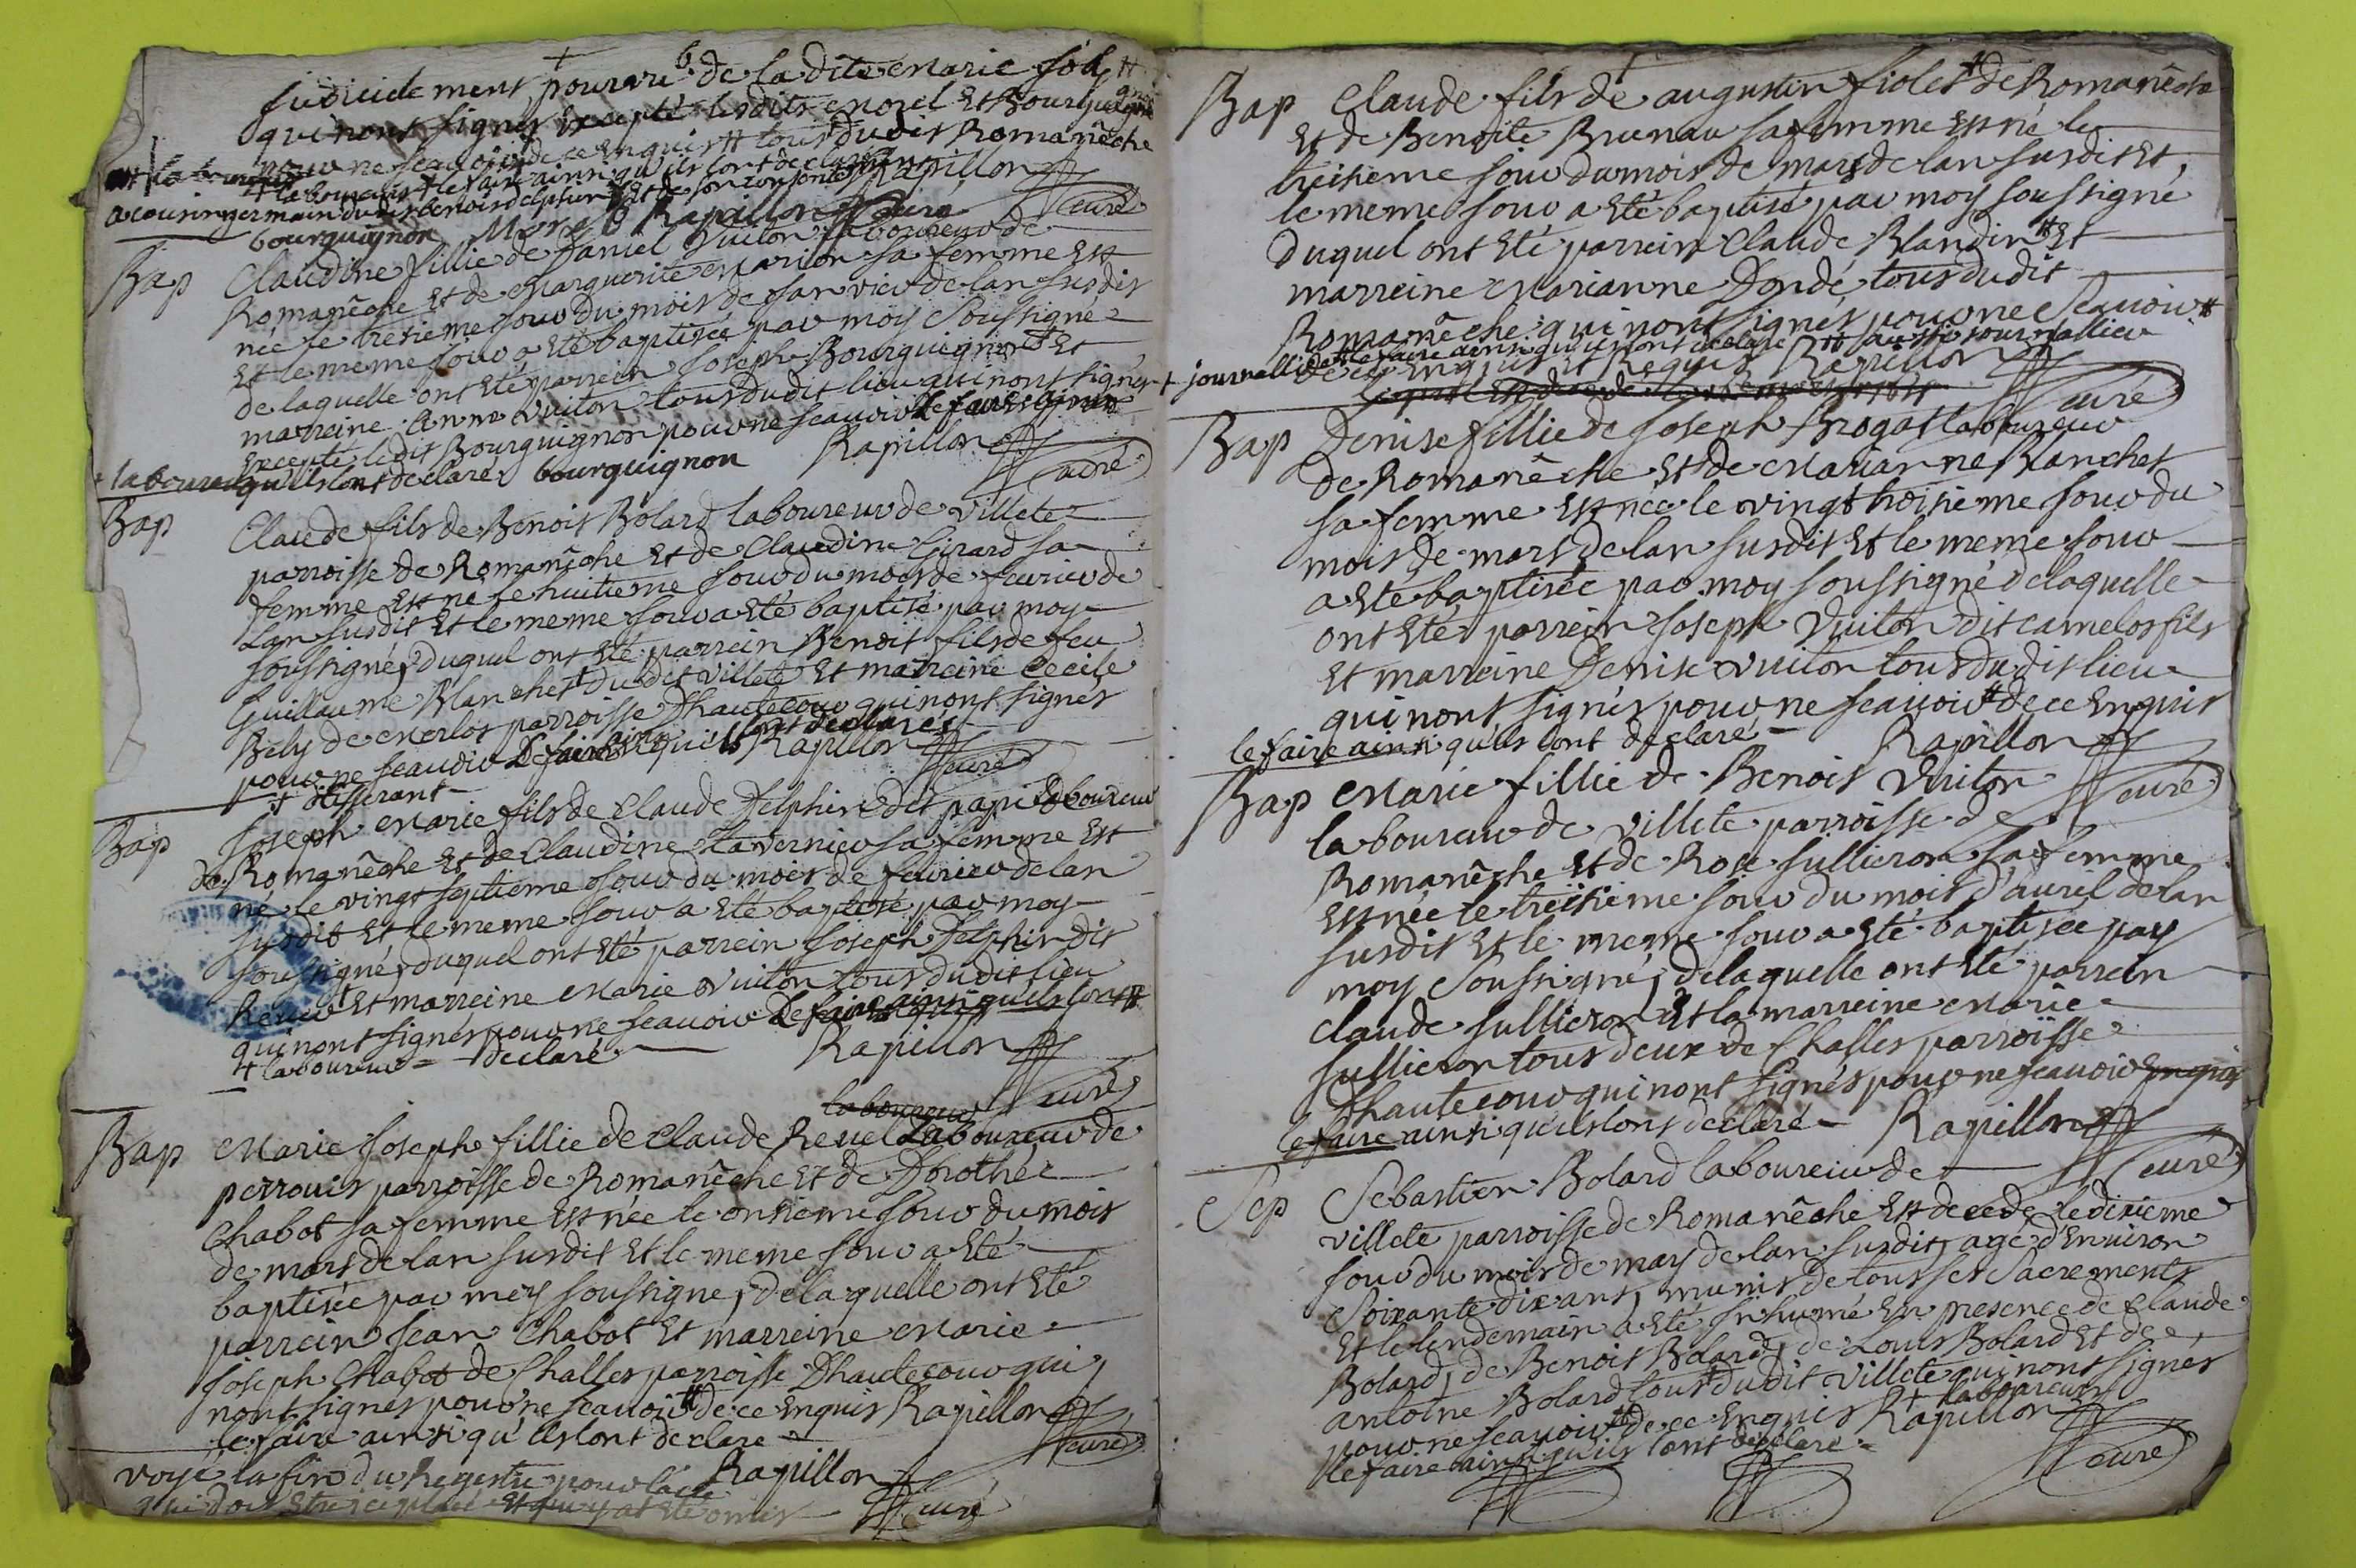 judicidement pourvu de la dite Marie
qui nont signés excepté lesdits Morel et Bourguignon
pour ne scauoir de ce enquis tous dudit Romanêche
le faire ainsi qu'ils lont declaré Rapillon
a cousin germain dudit benoit delphin et de son consentement curé
bourguignon Morel Rapillon Curé
Bap Claudine fillie de Daniel Vuiton laboureur de
Romanêche et de Marguerite Marion sa femme est
née le tresieme jour du mois de janvier de lan susdit
et le meme jour a eté baptisée par moy soussigné
de laquelle ont eté parrein Joseph Bourguignon + et
marreine Anne Vuiton tous dudit lieu qui nont signés
excepté ledit Bourguignon pour ne scauoir le faire ainsi
+ laboureur qu'ils lont declaré bourguignon Rapillon
curé
Bap Claude fils de Benoit Bolard laboureur de villete
parroisse de Romanêche et de Claudine Girard sa
femme est né le huitieme jour du mois de feurier de
lan susdit et le meme jour a eté baptisé par moy
soussigné, duquel ont eté parrein Benoit fils de feu
Guillaume Blanchet + dudit villete et marreine Cecile
Bely de Merlos parroisse Dhautecour qui nont signés
pour ne scauoir le faire ainsi qu'ils lont declarés
+ tisserant Rapillon curé
Bap Joseph Marie fils de Claude Delphin dit papi laboureur
de Romanêche et de Claudine Tavernier sa femme est
né le vingt septieme jour du mois de feurier de lan
susdit et le meme jour a eté baptisé par moy
soussigné, duquel ont eté parrein Joseph Delphin dit
+ et marreine Marie Vuiton tous dudit lieu
qui nont signés pour ne scauoir le faire ainsi qu'ils lont #
+ laboureur = declaré Rapillon
curé
laboureur
Bap Marie Joseph fillie de Claude Reuel Laboureur de
perrouis parroisse de Romanêche et de Dorothée
Chabot sa femme est née le onsieme jour du mois
de mars de lan susdit et le meme jour a eté
baptisée par moy soussigné, de laquelle ont eté
parrein Jean Chabot et marreine Marie
Joseph Chabot de Challes parroisse Dhautecour qui
nont signés pour ne scauoir # de ce enquis Rapillon
le faire ainsi qu'ils lont declaré curé
voyé la fin du Registre pour lacte Rapillon
qui doit etre icy placé et qui y at eté omis curé
Bap Claude fils de augustin fiolet + de Romanêche
et de Benoite Bruneau sa femme est né le
treisieme jour du mois de mars de lan susdit et
le meme jour a eté baptisé par moy soussigné
duquel ont eté parrein Claude Blandin # et
marreine Marianne Dondé tous dudit
Romanêche qui nont signés pour ne scauoir #
le faire ainsi qu'ils lont declaré # aussi journallier
+ journallier de ce enquis et requis Rapillon
curé
Bap Denise fillie de Joseph Brogat laboureur
de Romanêche et de Marianne Blanchet
sa femme est née le vingt troisieme jour du
mois de mars de lan susdit et le meme jour
a eté baptisée par moy soussigné de laquelle
ont eté parrein Joseph Vuiton dit camelos fils
et marreine Denise Vuiton tous dudit lieu
qui nont signés pour ne scauoir # de ce enquis
le faire ainsi qu'ils lont declaré Rapillon
curé
Bap Marie fillie de Benoit Vuiton
laboureur de villete parroisse de
Romanêche et de Rose Jullieron sa femme
est née le treisieme jour du mois d'auril de lan
susdit et le meme jour a eté baptisée par
moy soussigné, de laquelle ont eté parrein
Claude Jullieron et la marreine Marie
Jullieron tous deux de Challes parroisse
Dhautecour qui nont signés pour ne scauoir enquis
le faire ainsi qu'ils lont declaré Rapillon
curé
Sep Sebastien Bolard laboureur de
villete parroisse de Romanêche est decedé le dixieme
jour du mois de may de lan susdit, agé d'environ
soixante dix ans, munis de tous ses sacrements
et le lendemain a eté inhumé en presence de Claude
Bolard, de Benoit Bolard, de Louis Bolard et de
antoine Bolard tous + dudit villete qui nont signés
pour ne scauoir # de ce enquis + laboureurs
le faire ainsi qu'ils lont declaré Rapillon
curé